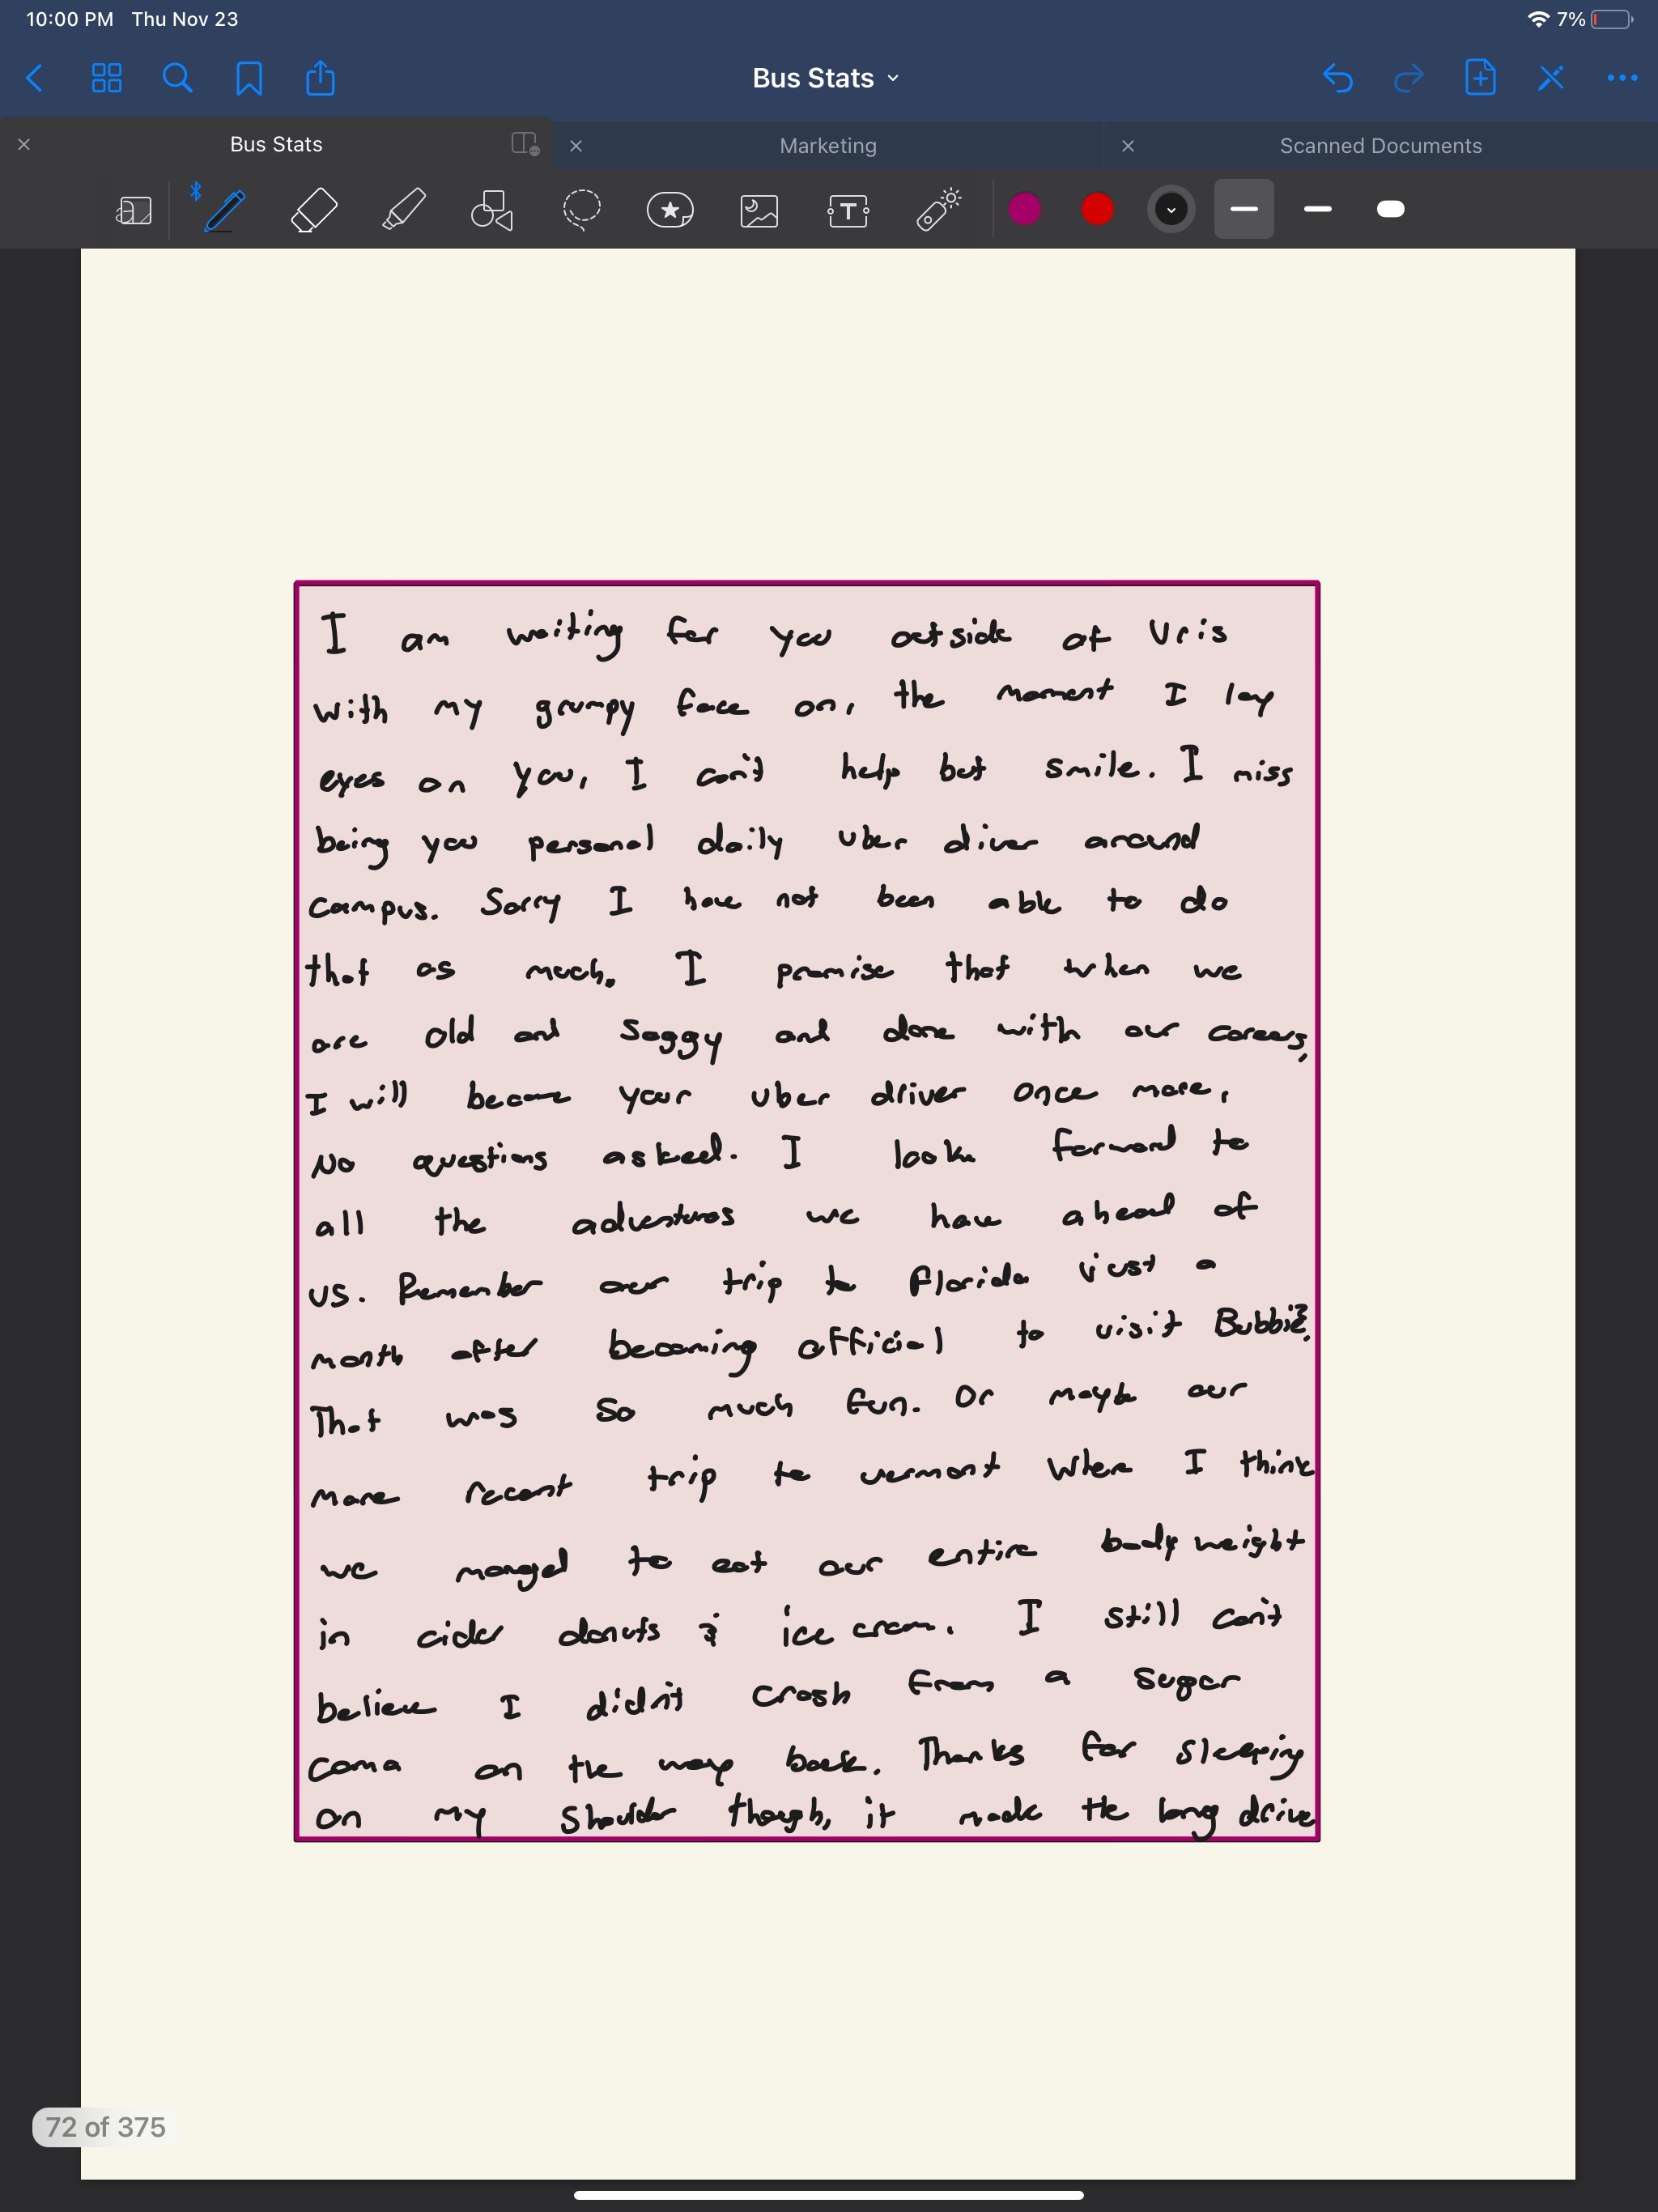 10:00 PM Thu Nov 23 7%
Bus Stats
Bus Stats Marketing Scanned Documents
T
I am waiting for you outside of Uris
with my grumpy face on, the moment I lay
eyes on you, I can't help but smile. I miss
being you personal daily uber driver around
campus. Sorry I have not been able to do
that as much. I promise that when we
are old and saggy and done with our careers,
I will become your uber driver once more,
No questions asked. I look forward to
all the adventures we have ahead of
us. Remember our trip to florida just a
month after becoming official to visit Bubbie?
That was so much fun. Or maybe our
more recent trip to vermont when I think
we managed to eat our entire body weight
in cider donuts & ice cream. I still can't
believe I didn't crash from a sugar
coma on the way back. Thanks for sleeping
on my shoulder though, it made the long drive
72 of 375